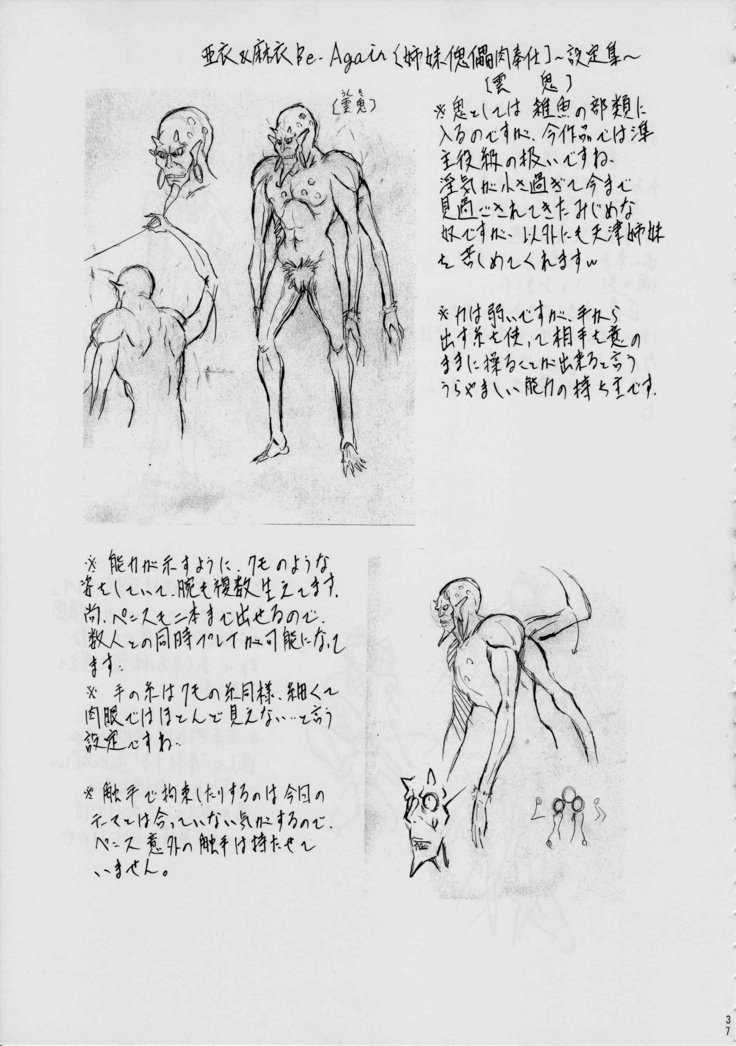 亜衣&麻衣Be-Again〔姉妹傀儡肉奉仕〕~設定集~
〔雲鬼〕
〔雲鬼〕
うんき
※鬼としては雑魚の部類に
入るのですが、今作品では準
主役級の扱いですね。
淫気が小さ過ぎて今まで
見過ごされてきたみじめな
奴ですが、以外にも天津姉妹
を苦しめてくれますw
※力は弱いですが、手から
出す糸を使って相手を意の
ままに操ることが出来ると言う
うらやましい能力の持ち主です。
※能力が示すように、クモのような
姿をしていて、腕も複数生えてます。
尚、ペニスも二本まで出せるので、
数人との同時プレイが可能になって
ます。
※手の糸はクモの糸同様、細くて
肉眼ではほとんど見えない…と言う
設定ですね。
※触手で拘束したりするのは今回の
テーマとは合っていない気がするので、
ペニス意外の触手は持たせて
いません。
37